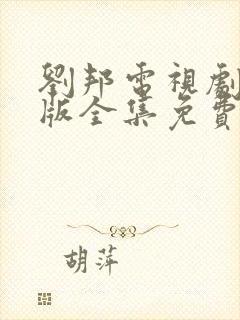 劉邦電視劇
版全集免費
胡萍